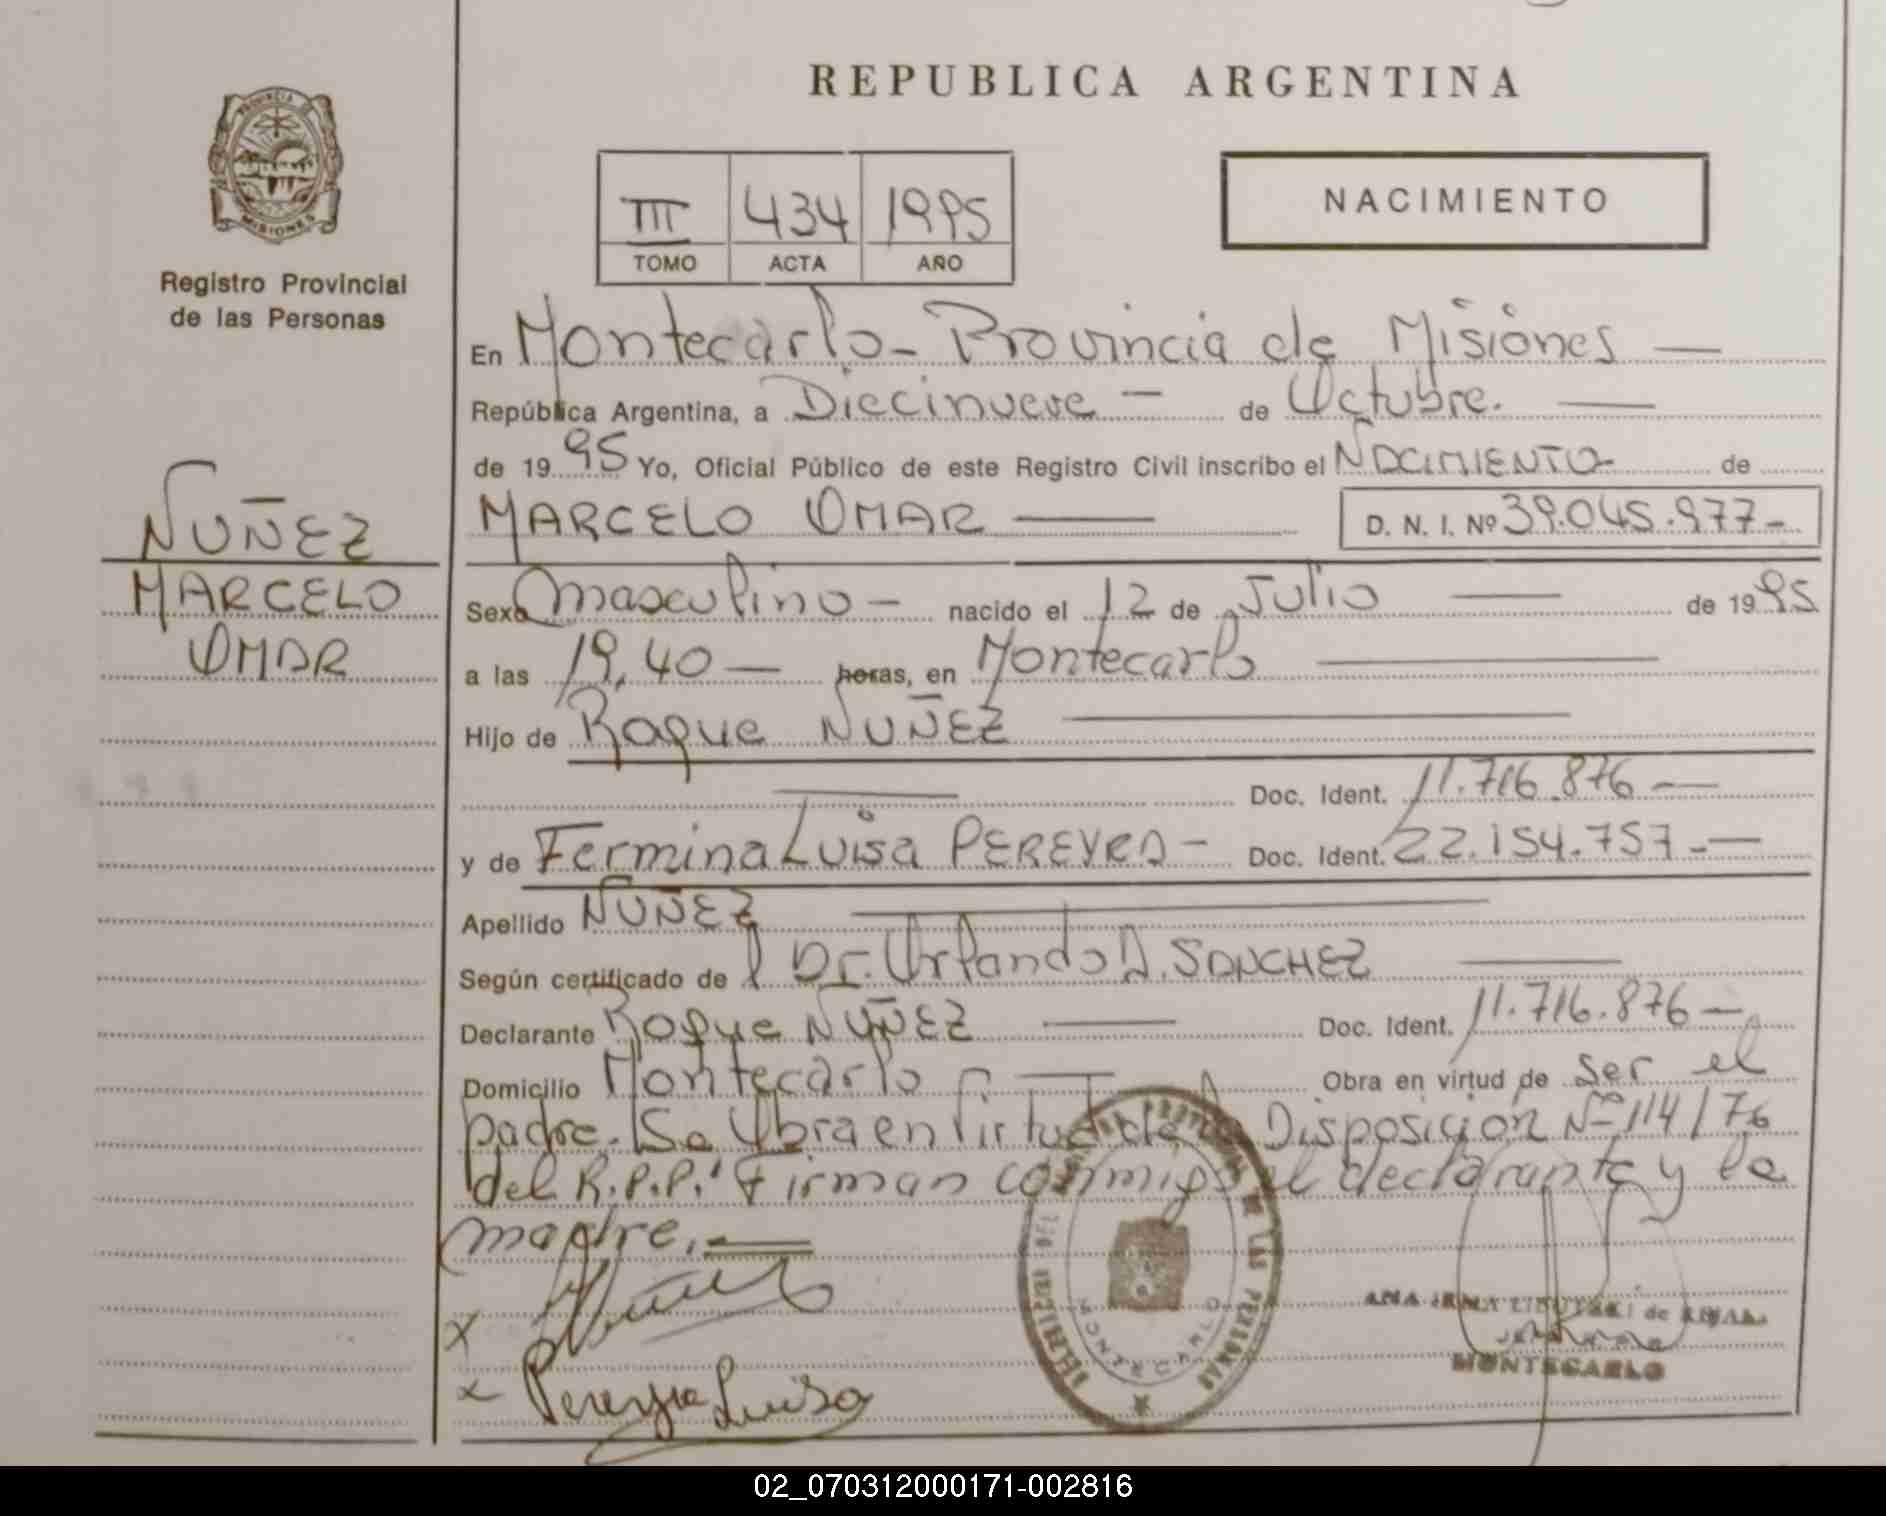 REPUBLICA ARGENTINA
PROVINCIA DE
MISIONES
Registro Provincial
de las Personas
III 434 1995
TOMO ACTA AÑO
NACIMIENTO
En Montecarlo - Provincia de Misiones —
República Argentina, a Diecinueve — de Octubre. —
de 1995 Yo, Oficial Público de este Registro Civil inscribo el NACIMIENTO de
MARCELO OMAR — D. N. I. Nº 39.045.977-
ÑUÑEZ
MARCELO
OMAR
Sexo masculino - nacido el 12 de Julio — de 1995
a las 19,40 — horas, en Montecarlo —
Hijo de Roque ÑUÑEZ —
— Doc. Ident. 11.716.876 —
y de Fermina Luisa PEREYRA - Doc. Ident. 22.154.757.—
Apellido ÑUÑEZ —
Según certificado de l Dr. Orlando A. SANCHEZ —
Declarante Roque ÑUÑEZ — Doc. Ident. 11.716.876 —
Domicilio Montecarlo — Obra en virtud de ser el
padre. Se Obra en Virtud de la Disposicion Nº 114/76
del R.P.P. Firman conmigo el declarante y la
madre. —
x
x Pereyra Luisa
REGISTRO PROVINCIAL DE LAS PERSONAS
MONTECARLO
ANA IRMA de
MONTECARLO
02_070312000171-002816